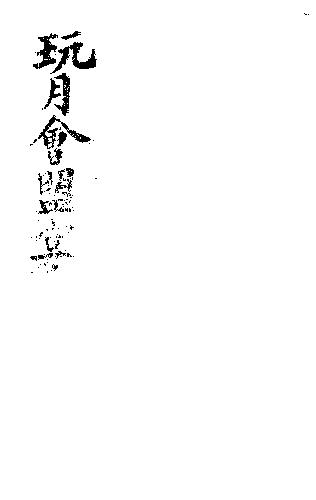 玩月會盟宴